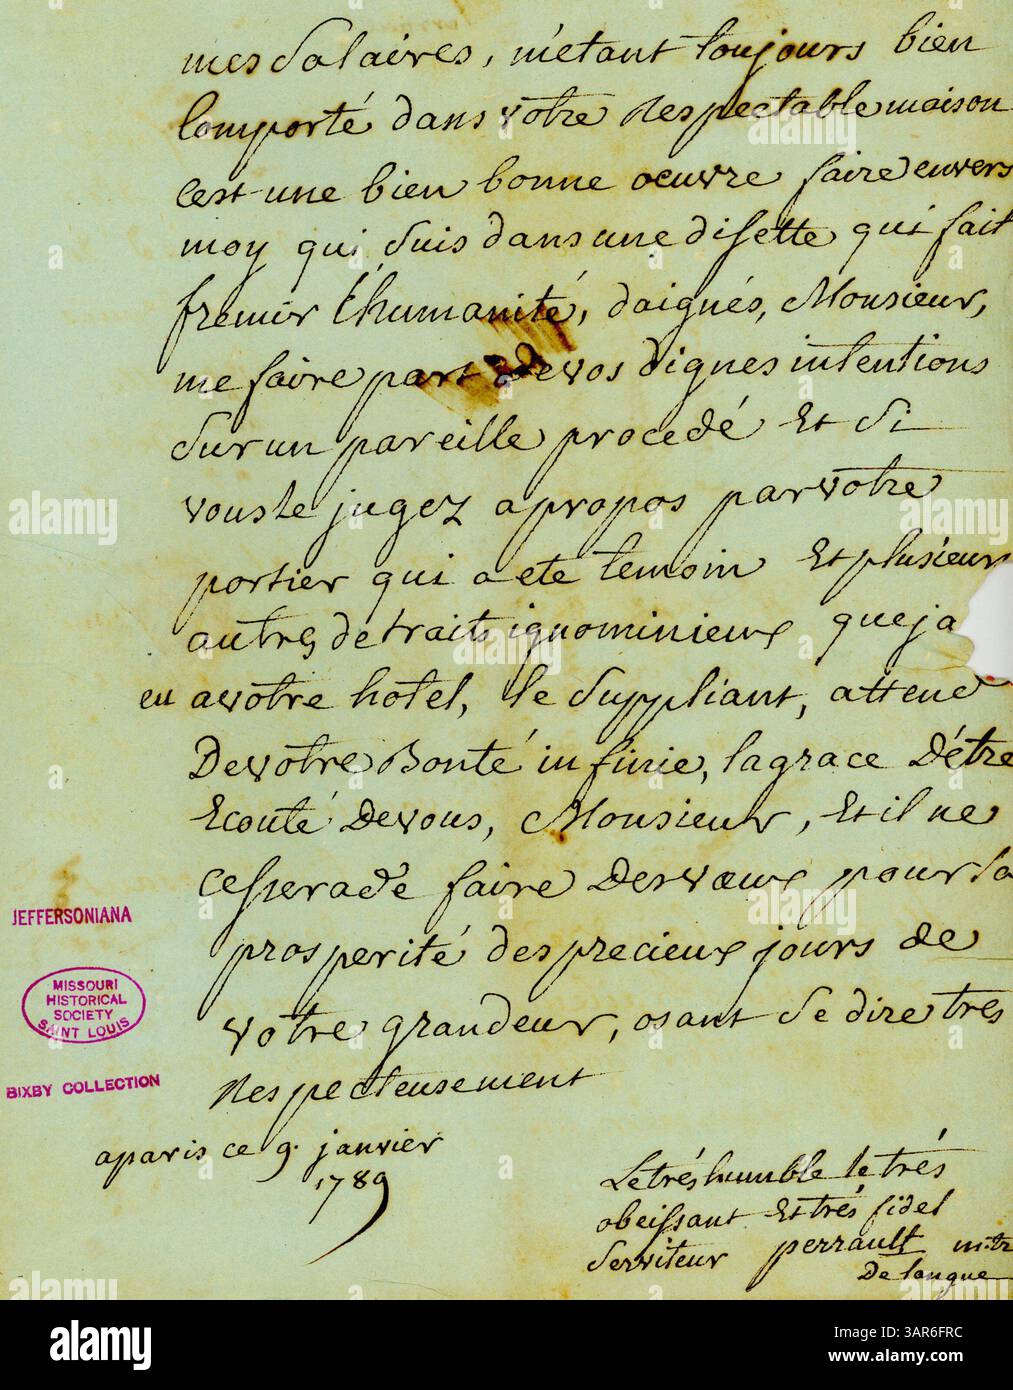 mes Salaires, m'etant toujours bien
Comporté dans votre Respectable maison
C'est une bien bonne oeuvre faire envers
moy qui Suis dans une disette qui fait
fremir L'humanité, daignés, Monsieur,
me faire part de vos dignes intentions
Sur un pareille procedé Et Si
vous le jugez apropos par votre
portier qui a ete temoin Et plusieurs
autres de traits ignominieux que ja
eu a votre hotel, Le Suppliant, attend
De votre Bonté infinie, la grace D'être
Ecouté De vous, Monsieur, Et il ne
Cessera de faire Des vœux pour la
prosperité des precieux jours de
votre grandeur, osant Se dire tres
Respecteusement
a paris ce 9. janvier
1789
Le trés humble le trés
obeissant Et trés fidel
Serviteur perrault mtr
De langue
JEFFERSONIANA
MISSOURI
HISTORICAL
SOCIETY
SAINT LOUIS
BIXBY COLLECTION
alamy
alamy
alamy
alamy
alamy
alamy
alamy
alamy
alamy
alamy
alamy
a
a
a
alamy
Image ID: 3AR6FRC
www.alamy.com